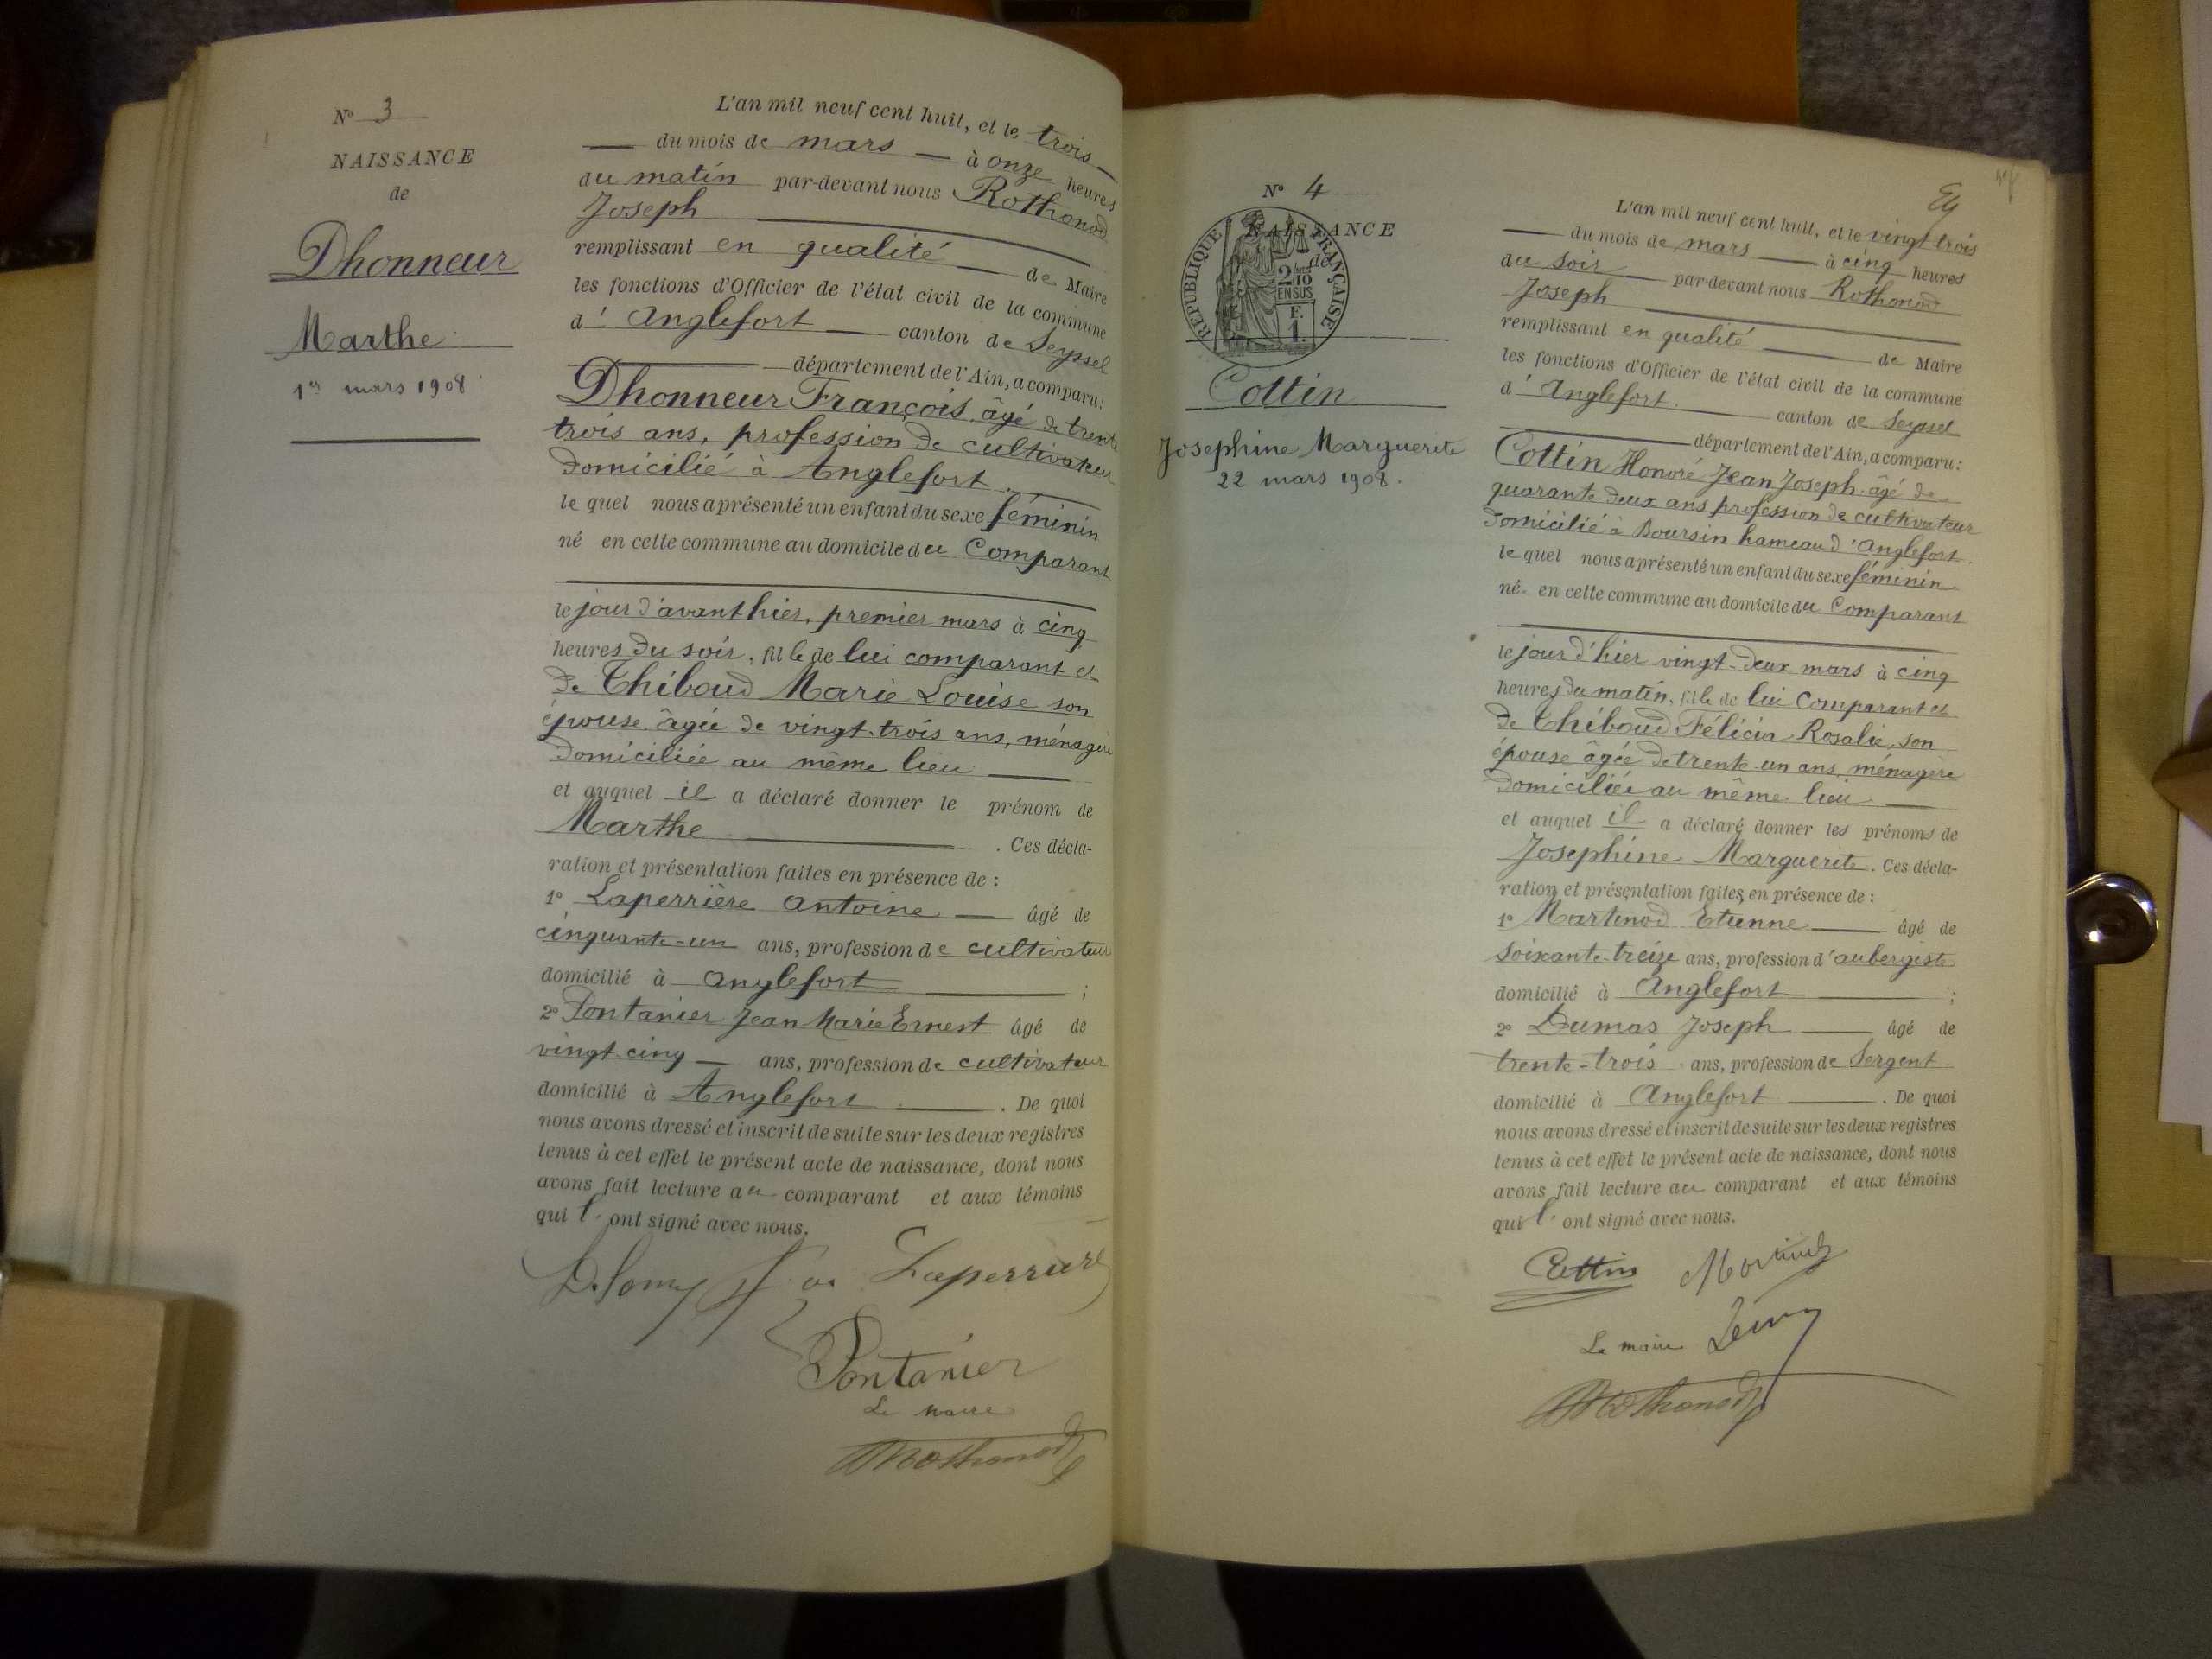 N° 3
NAISSANCE
de
Dhonneur
Marthe
1er mars 1908
L'an mil neuf cent huit, et le trois
du mois de mars à onze heures
du matin par-devant nous Rothonod
Joseph
remplissant en qualité de Maire
les fonctions d'Officier de l'état civil de la commune
d' Anglefort canton de Seyssel
département de l'Ain, a comparu:
Dhonneur François, âgé de trente
trois ans, profession de cultivateur
domicilié à Anglefort.
le quel nous a présenté un enfant du sexe féminin
né en cette commune au domicile du Comparant
le jour d'avant hier, premier mars à cinq
heures du soir, fille de lui comparant et
de Thiboud Marie Louise son
épouse âgée de vingt-trois ans, ménagère
domiciliée au même lieu
et auquel il a déclaré donner le prénom de
Marthe . Ces décla-
ration et présentation faites en présence de :
1° Laperrière Antoine âgé de
cinquante-un ans, profession de cultivateur
domicilié à Anglefort ;
2° Pontanier Jean Marie Ernest âgé de
vingt-cinq ans, profession de cultivateur
domicilié à Anglefort . De quoi
nous avons dressé et inscrit de suite sur les deux registres
tenus à cet effet le présent acte de naissance, dont nous
avons fait lecture au comparant et aux témoins
qui l' ont signé avec nous.
Laperrière
Pontanier
Le maire
Rothonod
N° 4
NAISSANCE
de
RÉPUBLIQUE FRANÇAISE
2/10
EN SUS
F.
1.
Cottin
Josephine Marguerite
22 mars 1908.
L'an mil neuf cent huit, et le vingt trois
du mois de mars à cinq heures
du soir par-devant nous Rothonod
Joseph
remplissant en qualité de Maire
les fonctions d'Officier de l'état civil de la commune
d' Anglefort. canton de Seyssel
département de l'Ain, a comparu:
Cottin Honoré Jean Joseph âgé de
quarante-deux ans profession de cultivateur
domicilié à Boursin hameau d'Anglefort.
le quel nous a présenté un enfant du sexe féminin
né en cette commune au domicile du Comparant
le jour d'hier vingt-deux mars à cinq
heures du matin, fille de lui Comparant et
de Thiboud Félicia Rosalie, son
épouse âgée de trente-un ans, ménagère
domiciliée au même lieu
et auquel il a déclaré donner les prénoms de
Josephine Marguerite. Ces décla-
ration et présentation faites en présence de :
1° Martinod Etienne âgé de
soixante-treize ans, profession d'aubergiste
domicilié à Anglefort ;
2° Dumas Joseph âgé de
trente-trois ans, profession de Sergent
domicilié à Anglefort . De quoi
nous avons dressé et inscrit de suite sur les deux registres
tenus à cet effet le présent acte de naissance, dont nous
avons fait lecture au comparant et aux témoins
qui l' ont signé avec nous.
Cottin Martinod
Le maire
Rothonod